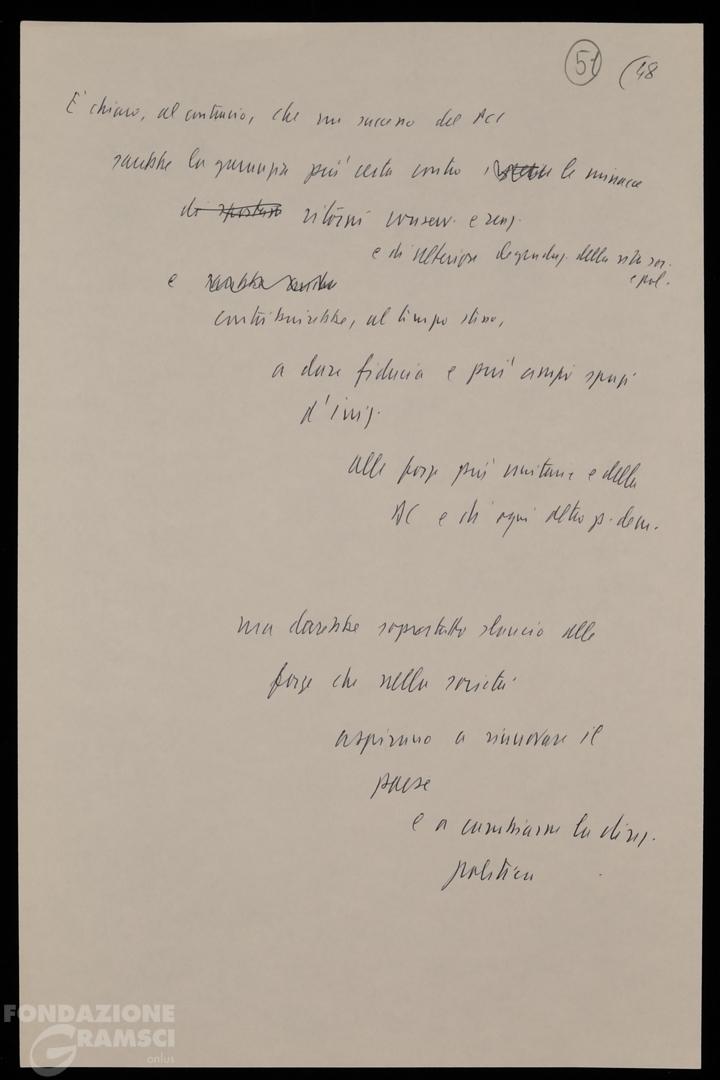 51 (48
E' chiaro, al contrario, che un successo del PCI
sarebbe la garanzia più certa contro le minacce
di spostam ritorni conserv. e reaz.
e di ulteriore degradaz. della vita soc.
e pol.
e sarebbe anche
contribuirebbe, al tempo stesso,
a dare fiducia e più ampi spazi
d'iniz.
alle forze più unitarie e della
DC e di ogni altro p. dem.
ma darebbe soprattutto slancio alle
forze che nella società
aspirano a rinnovare il
paese
e a cambiarne la direz.
politica
FONDAZIONE
GRAMSCI
onlus